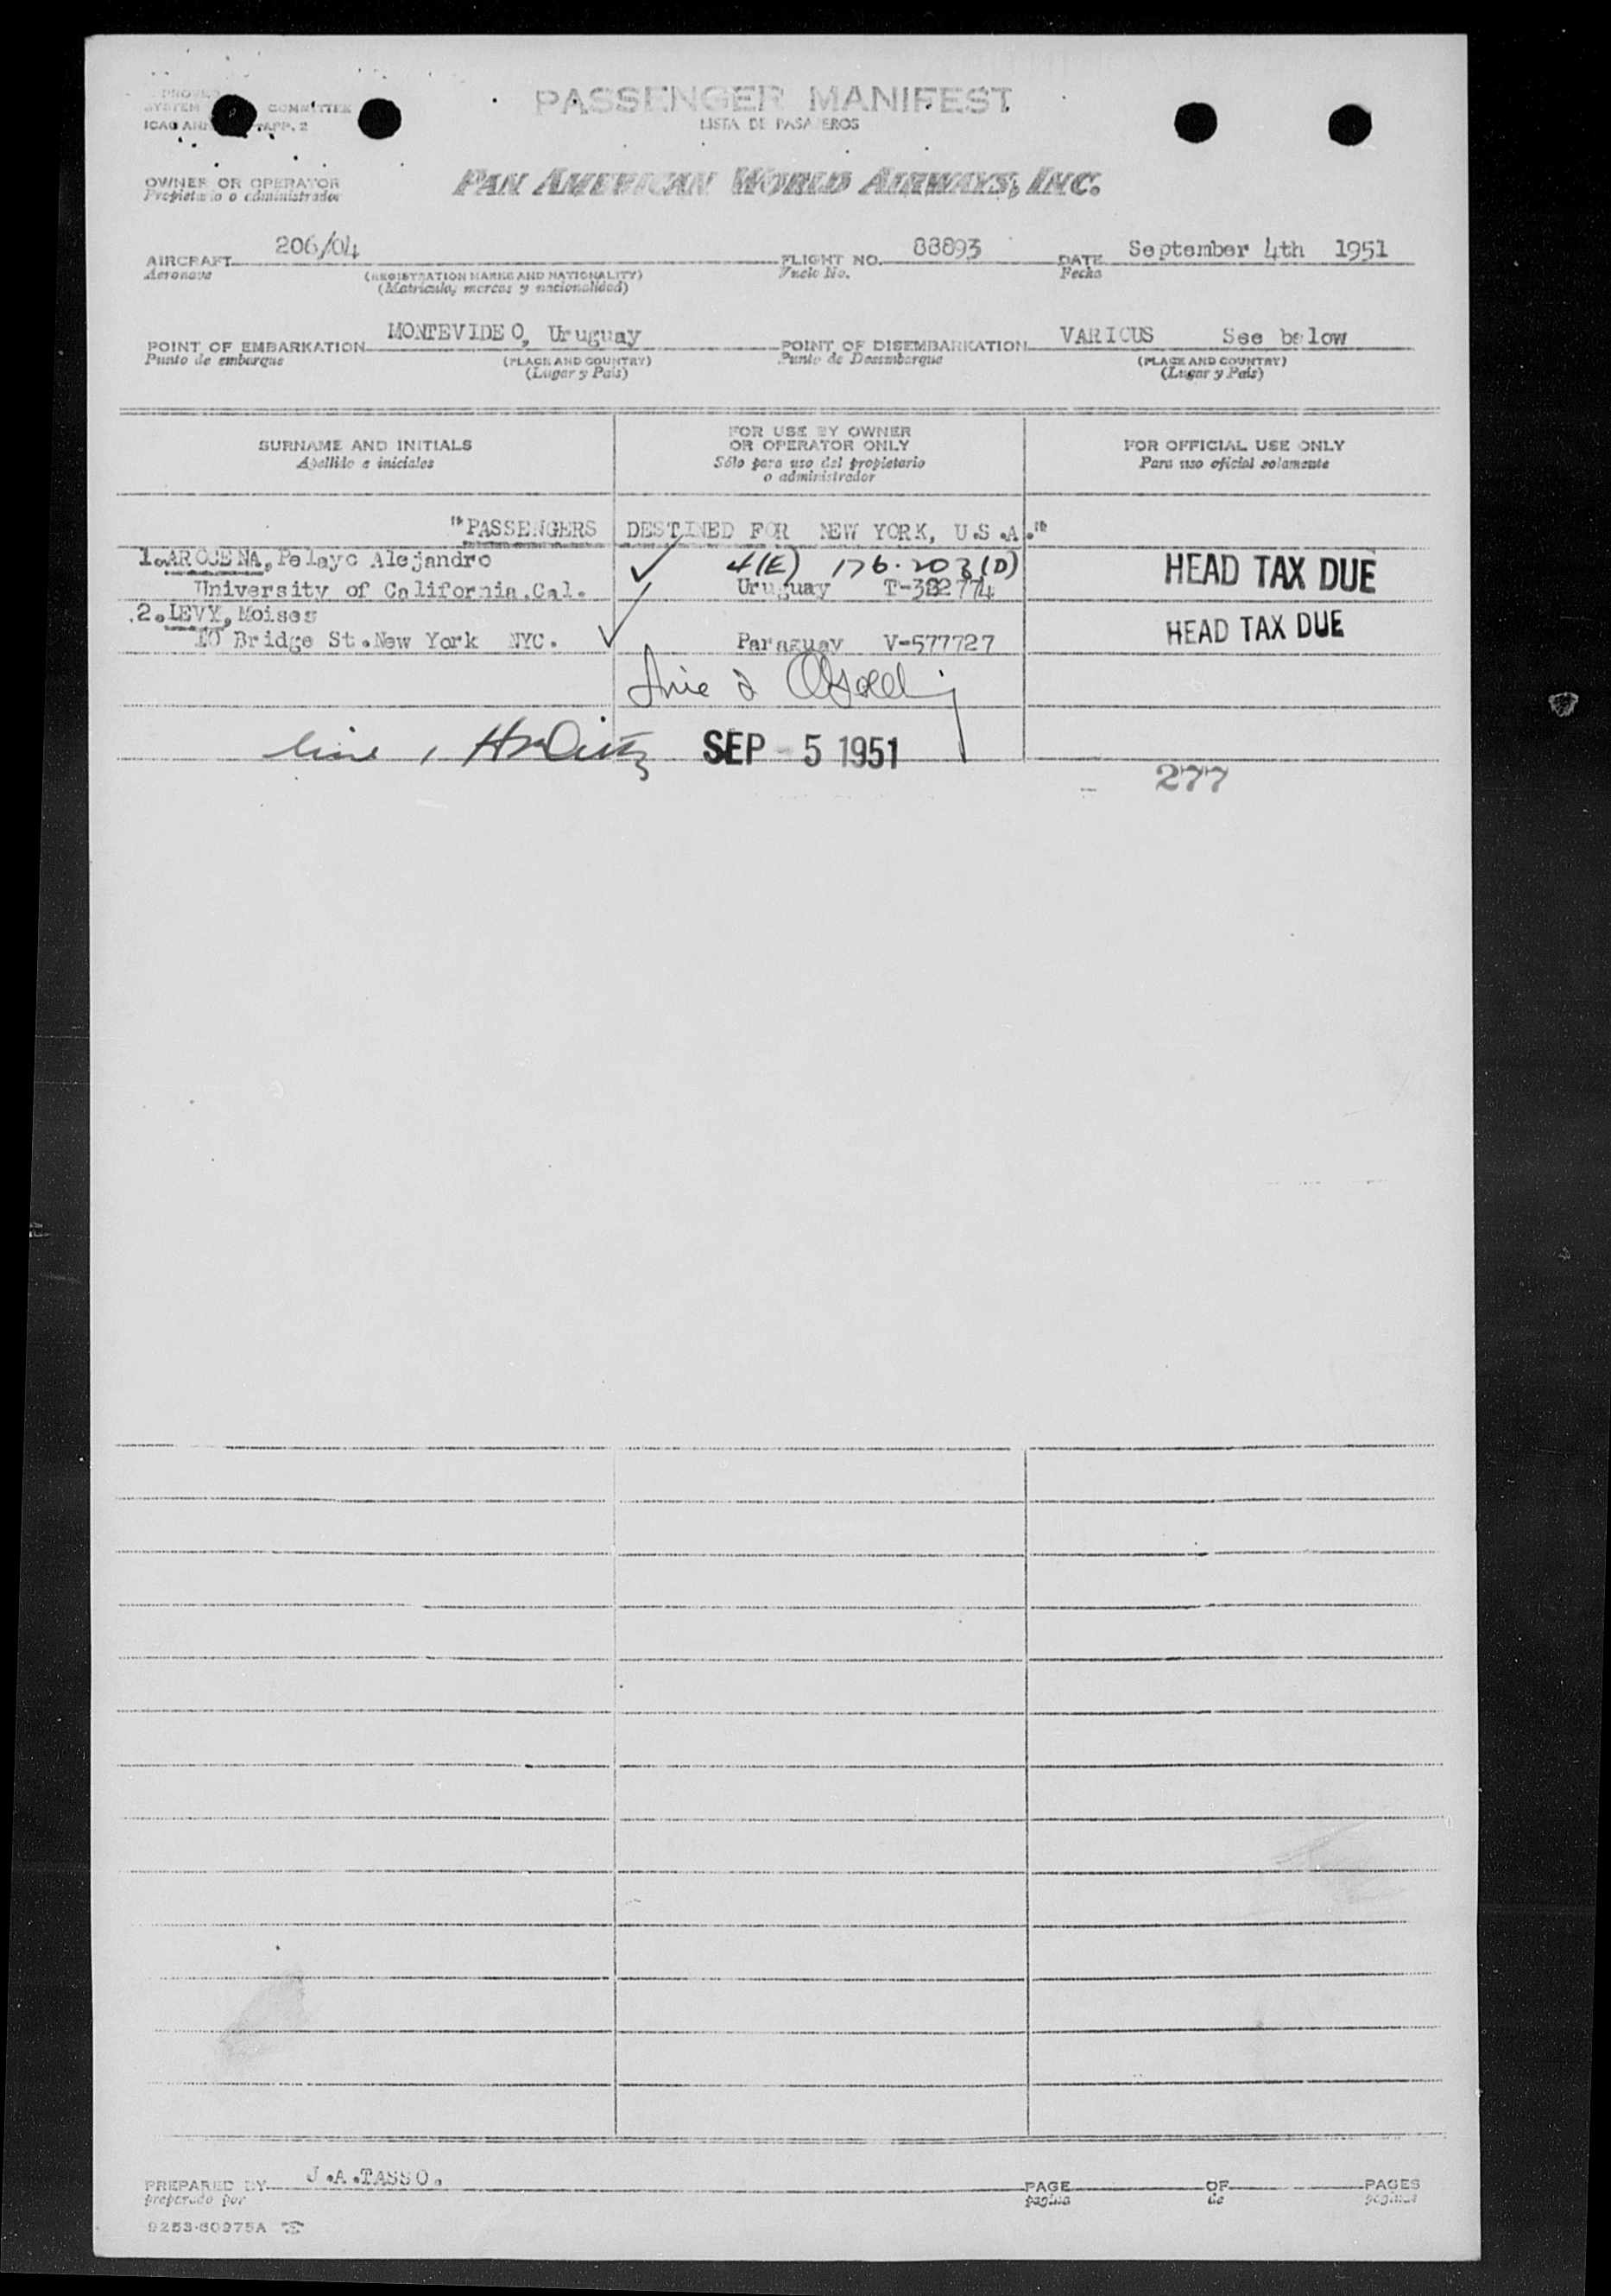 PASSENGER MANIFEST
LISTA DE PASAJEROS
COMMITTEE
APP. 2
OWNER OR OPERATOR
Propietario o administrador
PAN AMERICAN WORLD AIRWAYS, INC.
AIRCRAFT 206/04 FLIGHT NO. 88893 DATE September 4th 1951
Aeronave (REGISTRATION MARKS AND NATIONALITY) Vuelo No. Fecha
(Matricula, marcas y nacionalidad)
POINT OF EMBARKATION MONTEVIDEO, Uruguay POINT OF DISEMBARKATION VARIOUS See below
Punto de embarque (PLACE AND COUNTRY) Punto de Desembarque (PLACE AND COUNTRY)
(Lugar y País) (Lugar y País)
SURNAME AND INITIALS
Apellido e iniciales
FOR USE BY OWNER
OR OPERATOR ONLY
Sólo para uso del propietario
o administrador
FOR OFFICIAL USE ONLY
Para uso oficial solamente
"PASSENGERS DESTINED FOR NEW YORK, U.S.A."
1.AROCENA, Pelayo Alejandro 4(E) 176.203(D) HEAD TAX DUE
University of California.Cal. Uruguay
2.LEVY, Moises HEAD TAX DUE
10 Bridge St.New York NYC. Paraguay V-577727
line 2
line 1
SEP - 5 1951
277
PREPARED BY J.A.TASSO. PAGE OF PAGES
preparado por pagina de paginas
9253-60975A